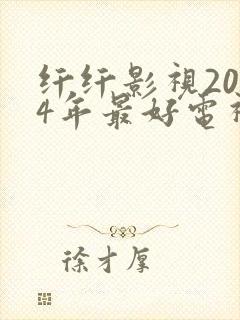 纤纤影視20
4年最好電視
徐才厚